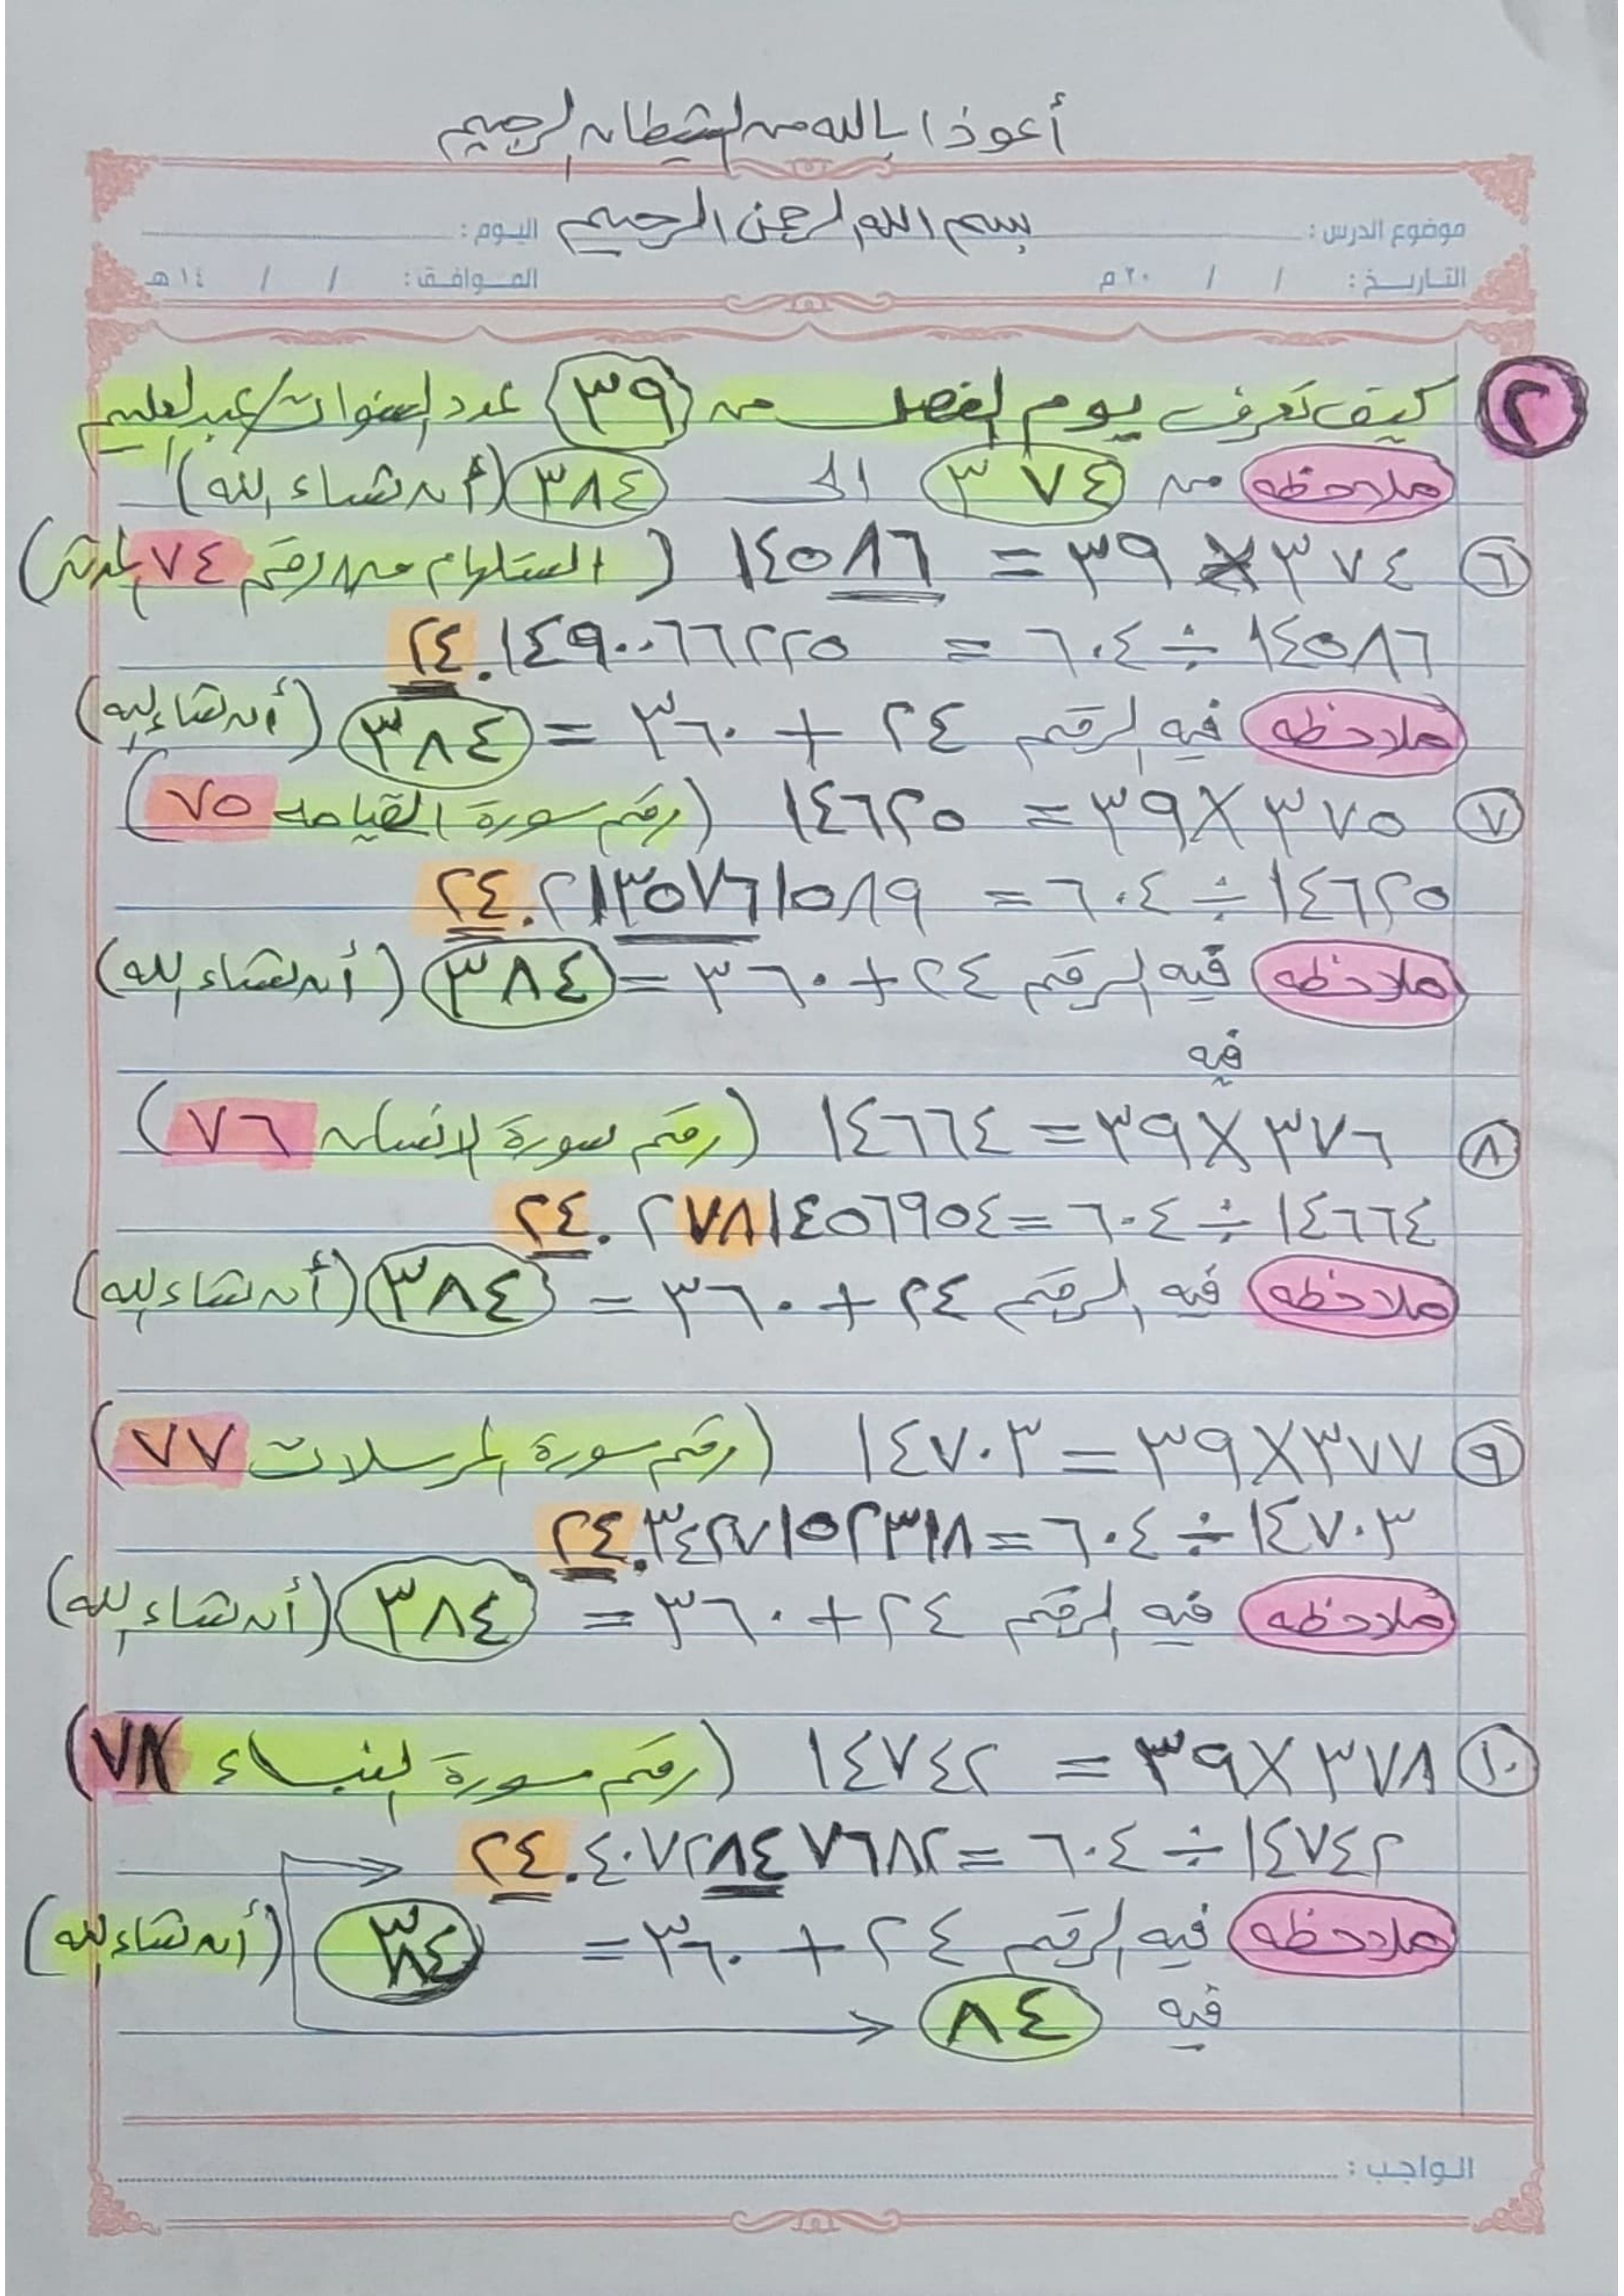 أعوذ بالله من الشيطان الرجيم
موضوع الدرس : بسم الله الرحمن الرحيم اليوم :
التاريخ : / / ٢٠ م الموافق : / / ١٤ هـ
٢ كيف تعرف يوم الفصل من ٣٩ عدد السنوات / عبدالعليم
ملاحظه من ٣٧٤ الى ٣٨٤ (أن شاء الله)
٦ ٣٧٤ × ٣٩ = ١٤٥٨٦ ( استلهام من رقم ٧٤ المدثر)
١٤٥٨٦ ÷ ٦٠٤ = ٢٤.١٤٩٠٠٦٦٢٢٥
ملاحظه فيه الرقم ٢٤ + ٣٦٠ = ٣٨٤ (أن شاء الله)
٧ ٣٧٥ × ٣٩ = ١٤٦٢٥ (رقم سورة القيامه ٧٥)
١٤٦٢٥ ÷ ٦٠٤ = ٢٤.٢١٣٥٧٦١٥٨٩
ملاحظه فيه الرقم ٢٤ + ٣٦٠ = ٣٨٤ (أن شاء الله)
فيه
٨ ٣٧٦ × ٣٩ = ١٤٦٦٤ (رقم سورة الانسان ٧٦)
١٤٦٦٤ ÷ ٦٠٤ = ٢٤.٢٧٨١٤٥٦٩٥٤
ملاحظه فيه الرقم ٢٤ + ٣٦٠ = ٣٨٤ (أن شاء الله)
٩ ٣٧٧ × ٣٩ = ١٤٧٠٣ (رقم سورة المرسلات ٧٧)
١٤٧٠٣ ÷ ٦٠٤ = ٢٤.٣٤٢٧١٥٢٣١٨
ملاحظه فيه الرقم ٢٤ + ٣٦٠ = ٣٨٤ (أن شاء الله)
١٠ ٣٧٨ × ٣٩ = ١٤٧٤٢ (رقم سورة النبــاء ٧٨)
١٤٧٤٢ ÷ ٦٠٤ = ٢٤.٤٠٧٢٨٤٧٦٨٢
ملاحظه فيه الرقم ٢٤ + ٣٦٠ = ٣٨٤ (أن شاء الله)
فيه ٨٤
الواجب :